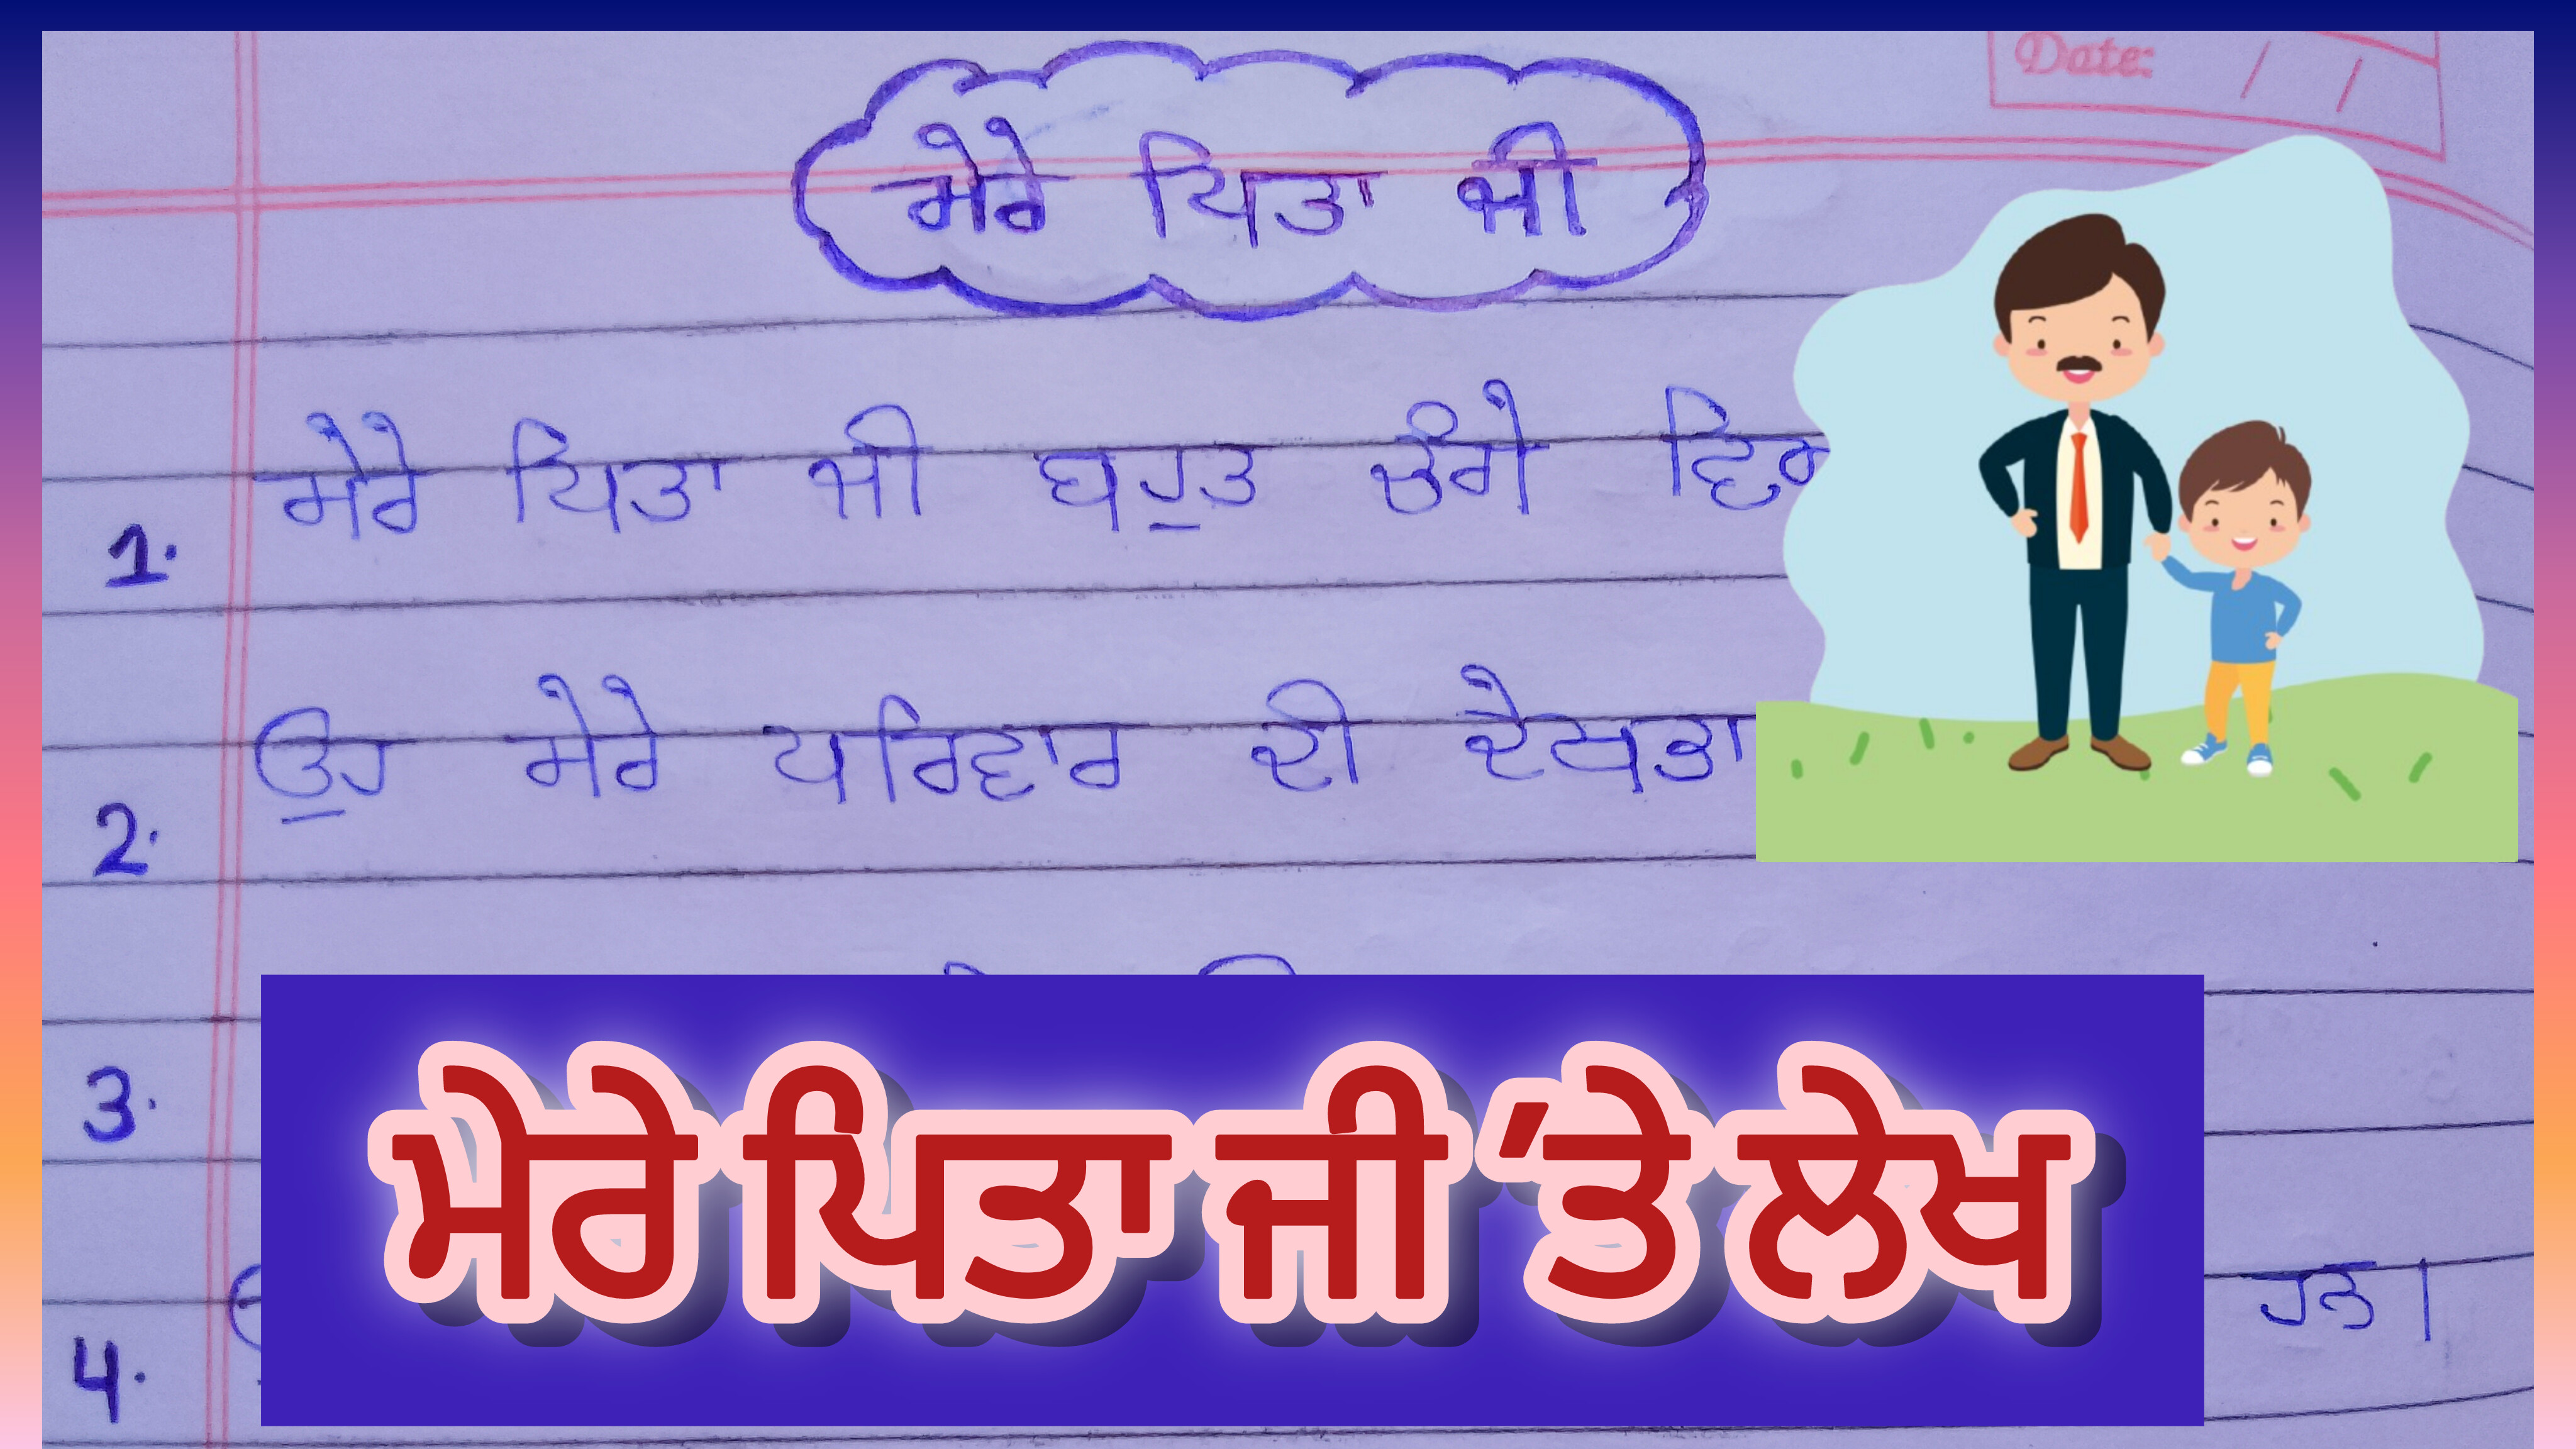 Date: / /
ਮੇਰੇ ਪਿਤਾ ਜੀ
1. ਮੇਰੇ ਪਿਤਾ ਜੀ ਬਹੁਤ ਚੰਗੇ
2. ਉਹ ਮੇਰੇ ਪਰਿਵਾਰ ਦੀ ਦੇਖਭਾ
3.
4. ਹਨ।
ਮੇਰੇ ਪਿਤਾ ਜੀ 'ਤੇ ਲੇਖ